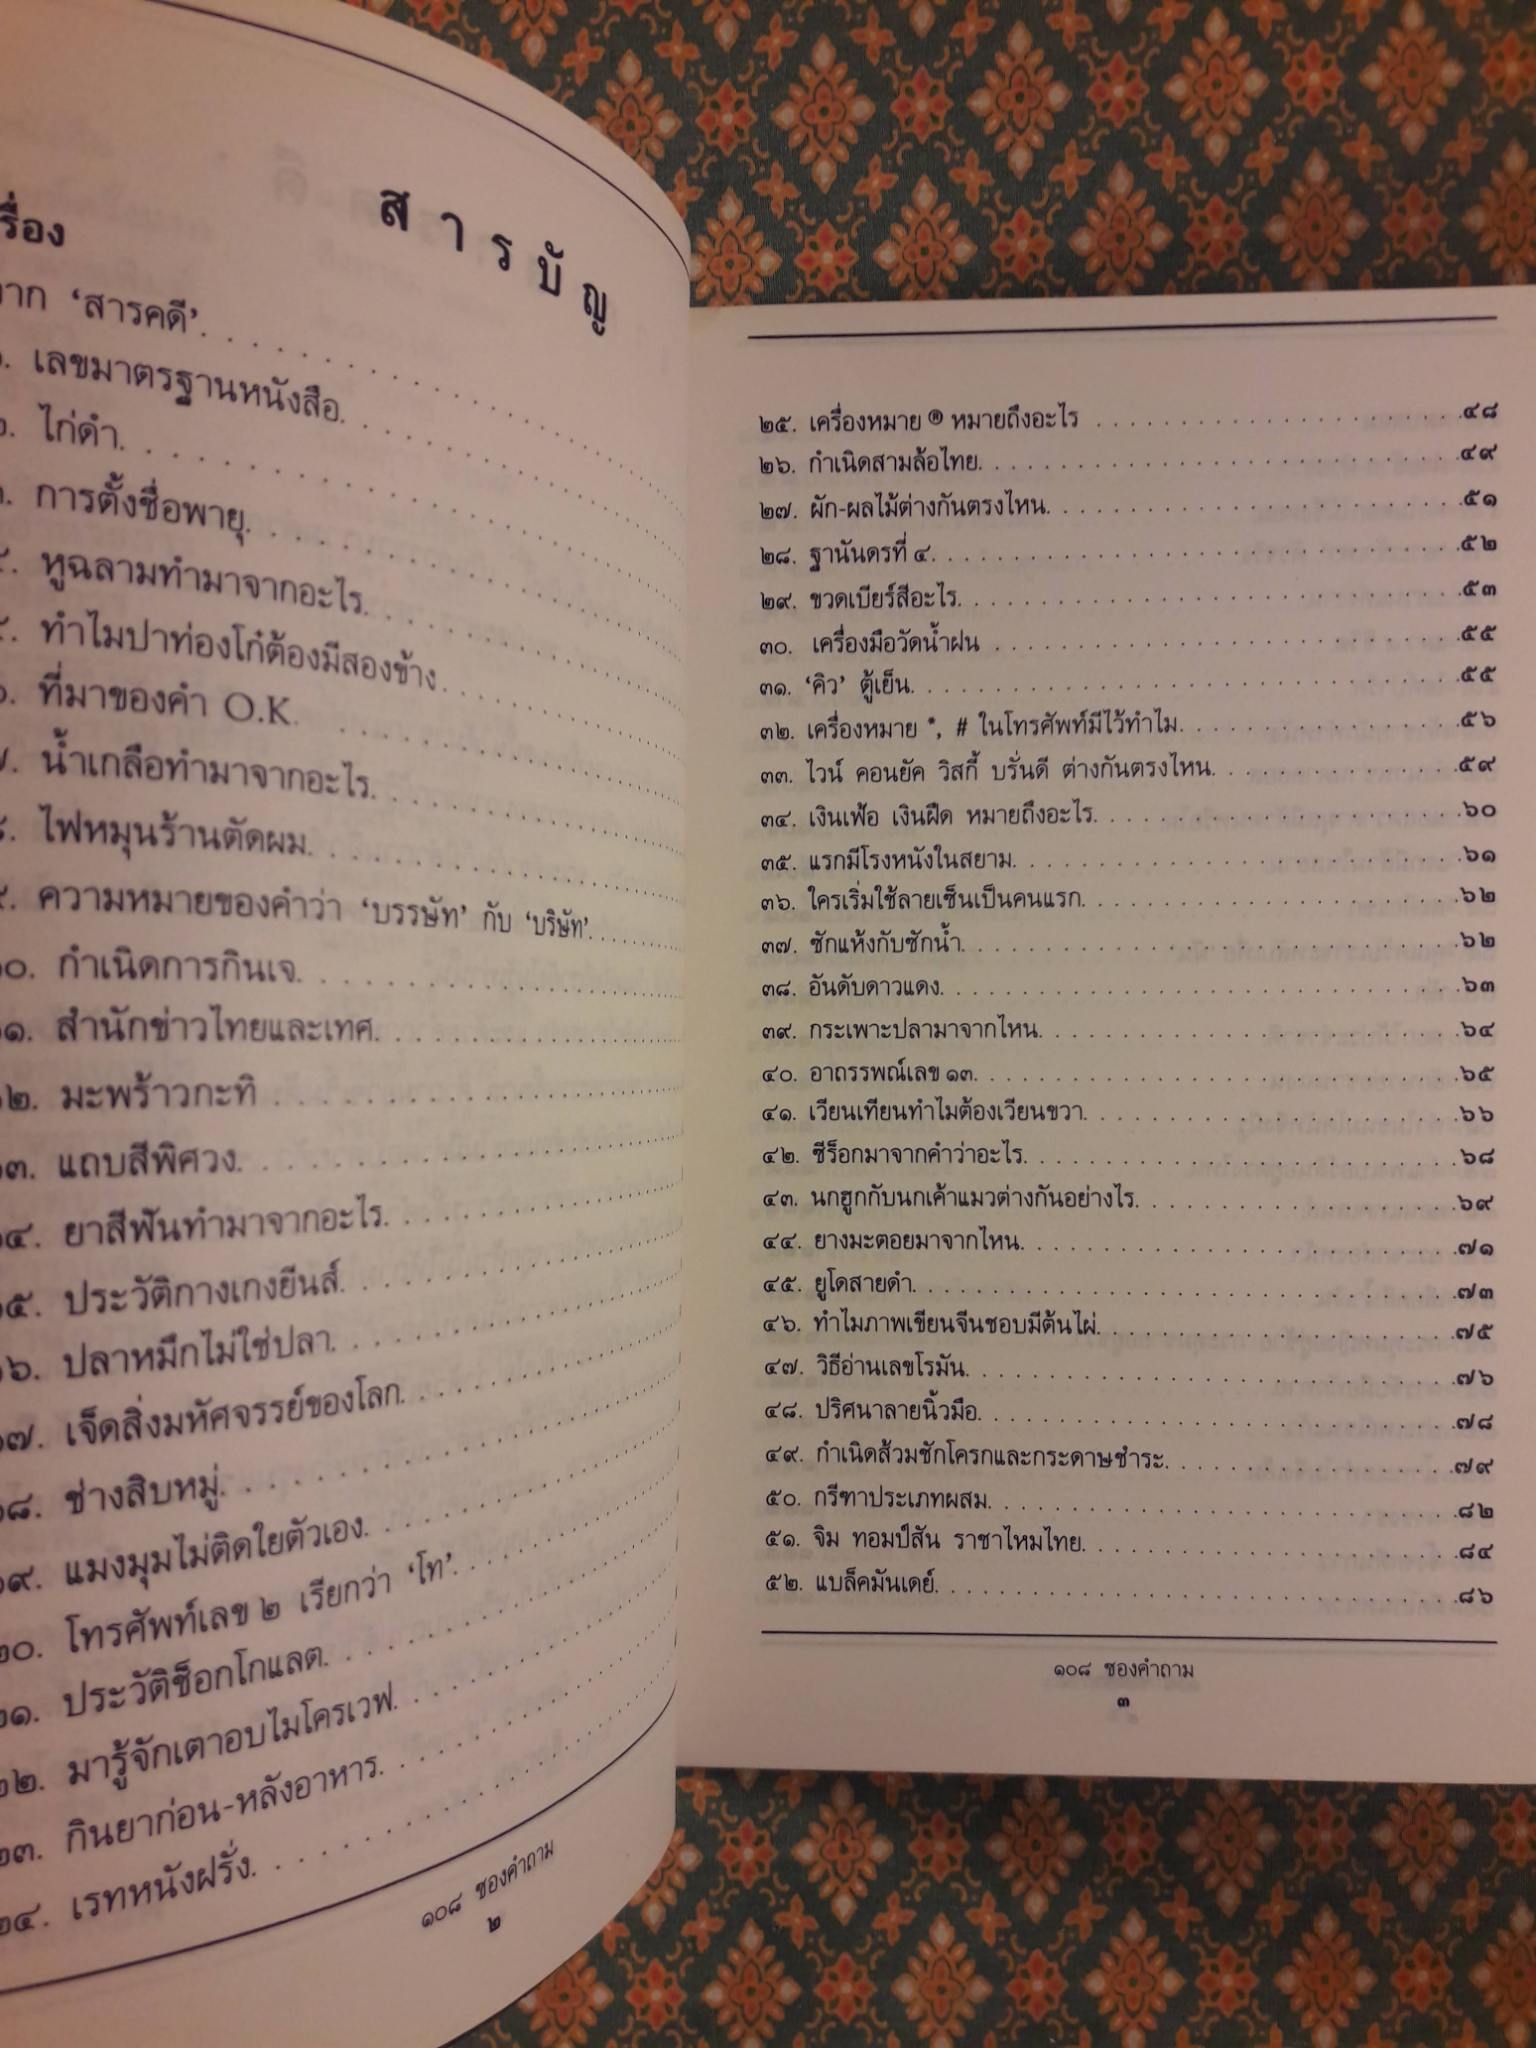 สารบัญ
'สารคดี'
เลขมาตรฐานหนังสือ
ไก่ดำ
การตั้งชื่อพายุ
หูฉลามทำมาจากอะไร
ทำไมปาท่องโก๋ต้องมีสองข้าง
ที่มาของคำ O.K.
น้ำเกลือทำมาจากอะไร
ไฟหมุนร้านตัดผม
ความหมายของคำว่า 'บรรษัท' กับ 'บริษัท'
๑๐. กำเนิดการกินเจ
๑๑. สำนักข่าวไทยและเทศ
๑๒. มะพร้าวกะทิ
๑๓. แถบสีพิศวง
๑๔. ยาสีฟันทำมาจากอะไร
๑๕. ประวัติกางเกงยีนส์
๑๖. ปลาหมึกไม่ใช่ปลา
๑๗. เจ็ดสิ่งมหัศจรรย์ของโลก
๑๘. ช่างสิบหมู่
๑๙. แมงมุมไม่ติดใยตัวเอง
๒๐. โทรศัพท์เลข ๒ เรียกว่า 'โท'
๒๑. ประวัติช็อกโกแลต
๒๒. มารู้จักเตาอบไมโครเวฟ
๒๓. กินยาก่อน-หลังอาหาร
๒๔. เรทหนังฝรั่ง
๑๐๘ ซองคำถาม
๒
๒๕. เครื่องหมาย ® หมายถึงอะไร ๔๘
๒๖. กำเนิดสามล้อไทย ๔๙
๒๗. ผัก-ผลไม้ต่างกันตรงไหน ๕๑
๒๘. ฐานันดรที่ ๔ ๕๒
๒๙. ขวดเบียร์สีอะไร ๕๓
๓๐. เครื่องมือวัดน้ำฝน ๕๕
๓๑. 'คิว' ตู้เย็น ๕๕
๓๒. เครื่องหมาย *, # ในโทรศัพท์มีไว้ทำไม ๕๖
๓๓. ไวน์ คอนยัค วิสกี้ บรั่นดี ต่างกันตรงไหน ๕๙
๓๔. เงินเฟ้อ เงินฝืด หมายถึงอะไร ๖๐
๓๕. แรกมีโรงหนังในสยาม ๖๑
๓๖. ใครเริ่มใช้ลายเซ็นเป็นคนแรก ๖๒
๓๗. ซักแห้งกับซักน้ำ ๖๒
๓๘. อันดับดาวแดง ๖๓
๓๙. กระเพาะปลามาจากไหน ๖๔
๔๐. อาถรรพณ์เลข ๑๓ ๖๕
๔๑. เวียนเทียนทำไมต้องเวียนขวา ๖๖
๔๒. ซีร็อกมาจากคำว่าอะไร ๖๘
๔๓. นกฮูกกับนกเค้าแมวต่างกันอย่างไร ๖๙
๔๔. ยางมะตอยมาจากไหน ๗๑
๔๕. ยูโดสายดำ ๗๓
๔๖. ทำไมภาพเขียนจีนชอบมีต้นไผ่ ๗๕
๔๗. วิธีอ่านเลขโรมัน ๗๖
๔๘. ปริศนาลายนิ้วมือ ๗๘
๔๙. กำเนิดส้วมชักโครกและกระดาษชำระ ๗๙
๕๐. กรีฑาประเภทผสม ๘๒
๕๑. จิม ทอมป์สัน ราชาไหมไทย ๘๔
๕๒. แบล็คมันเดย์ ๘๖
๑๐๘ ซองคำถาม
๓